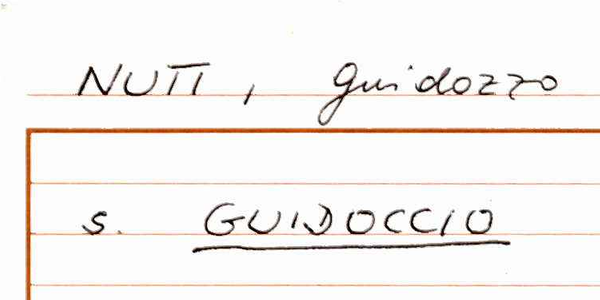 NUTI, Guidozzo
s. GUIDOCCIO